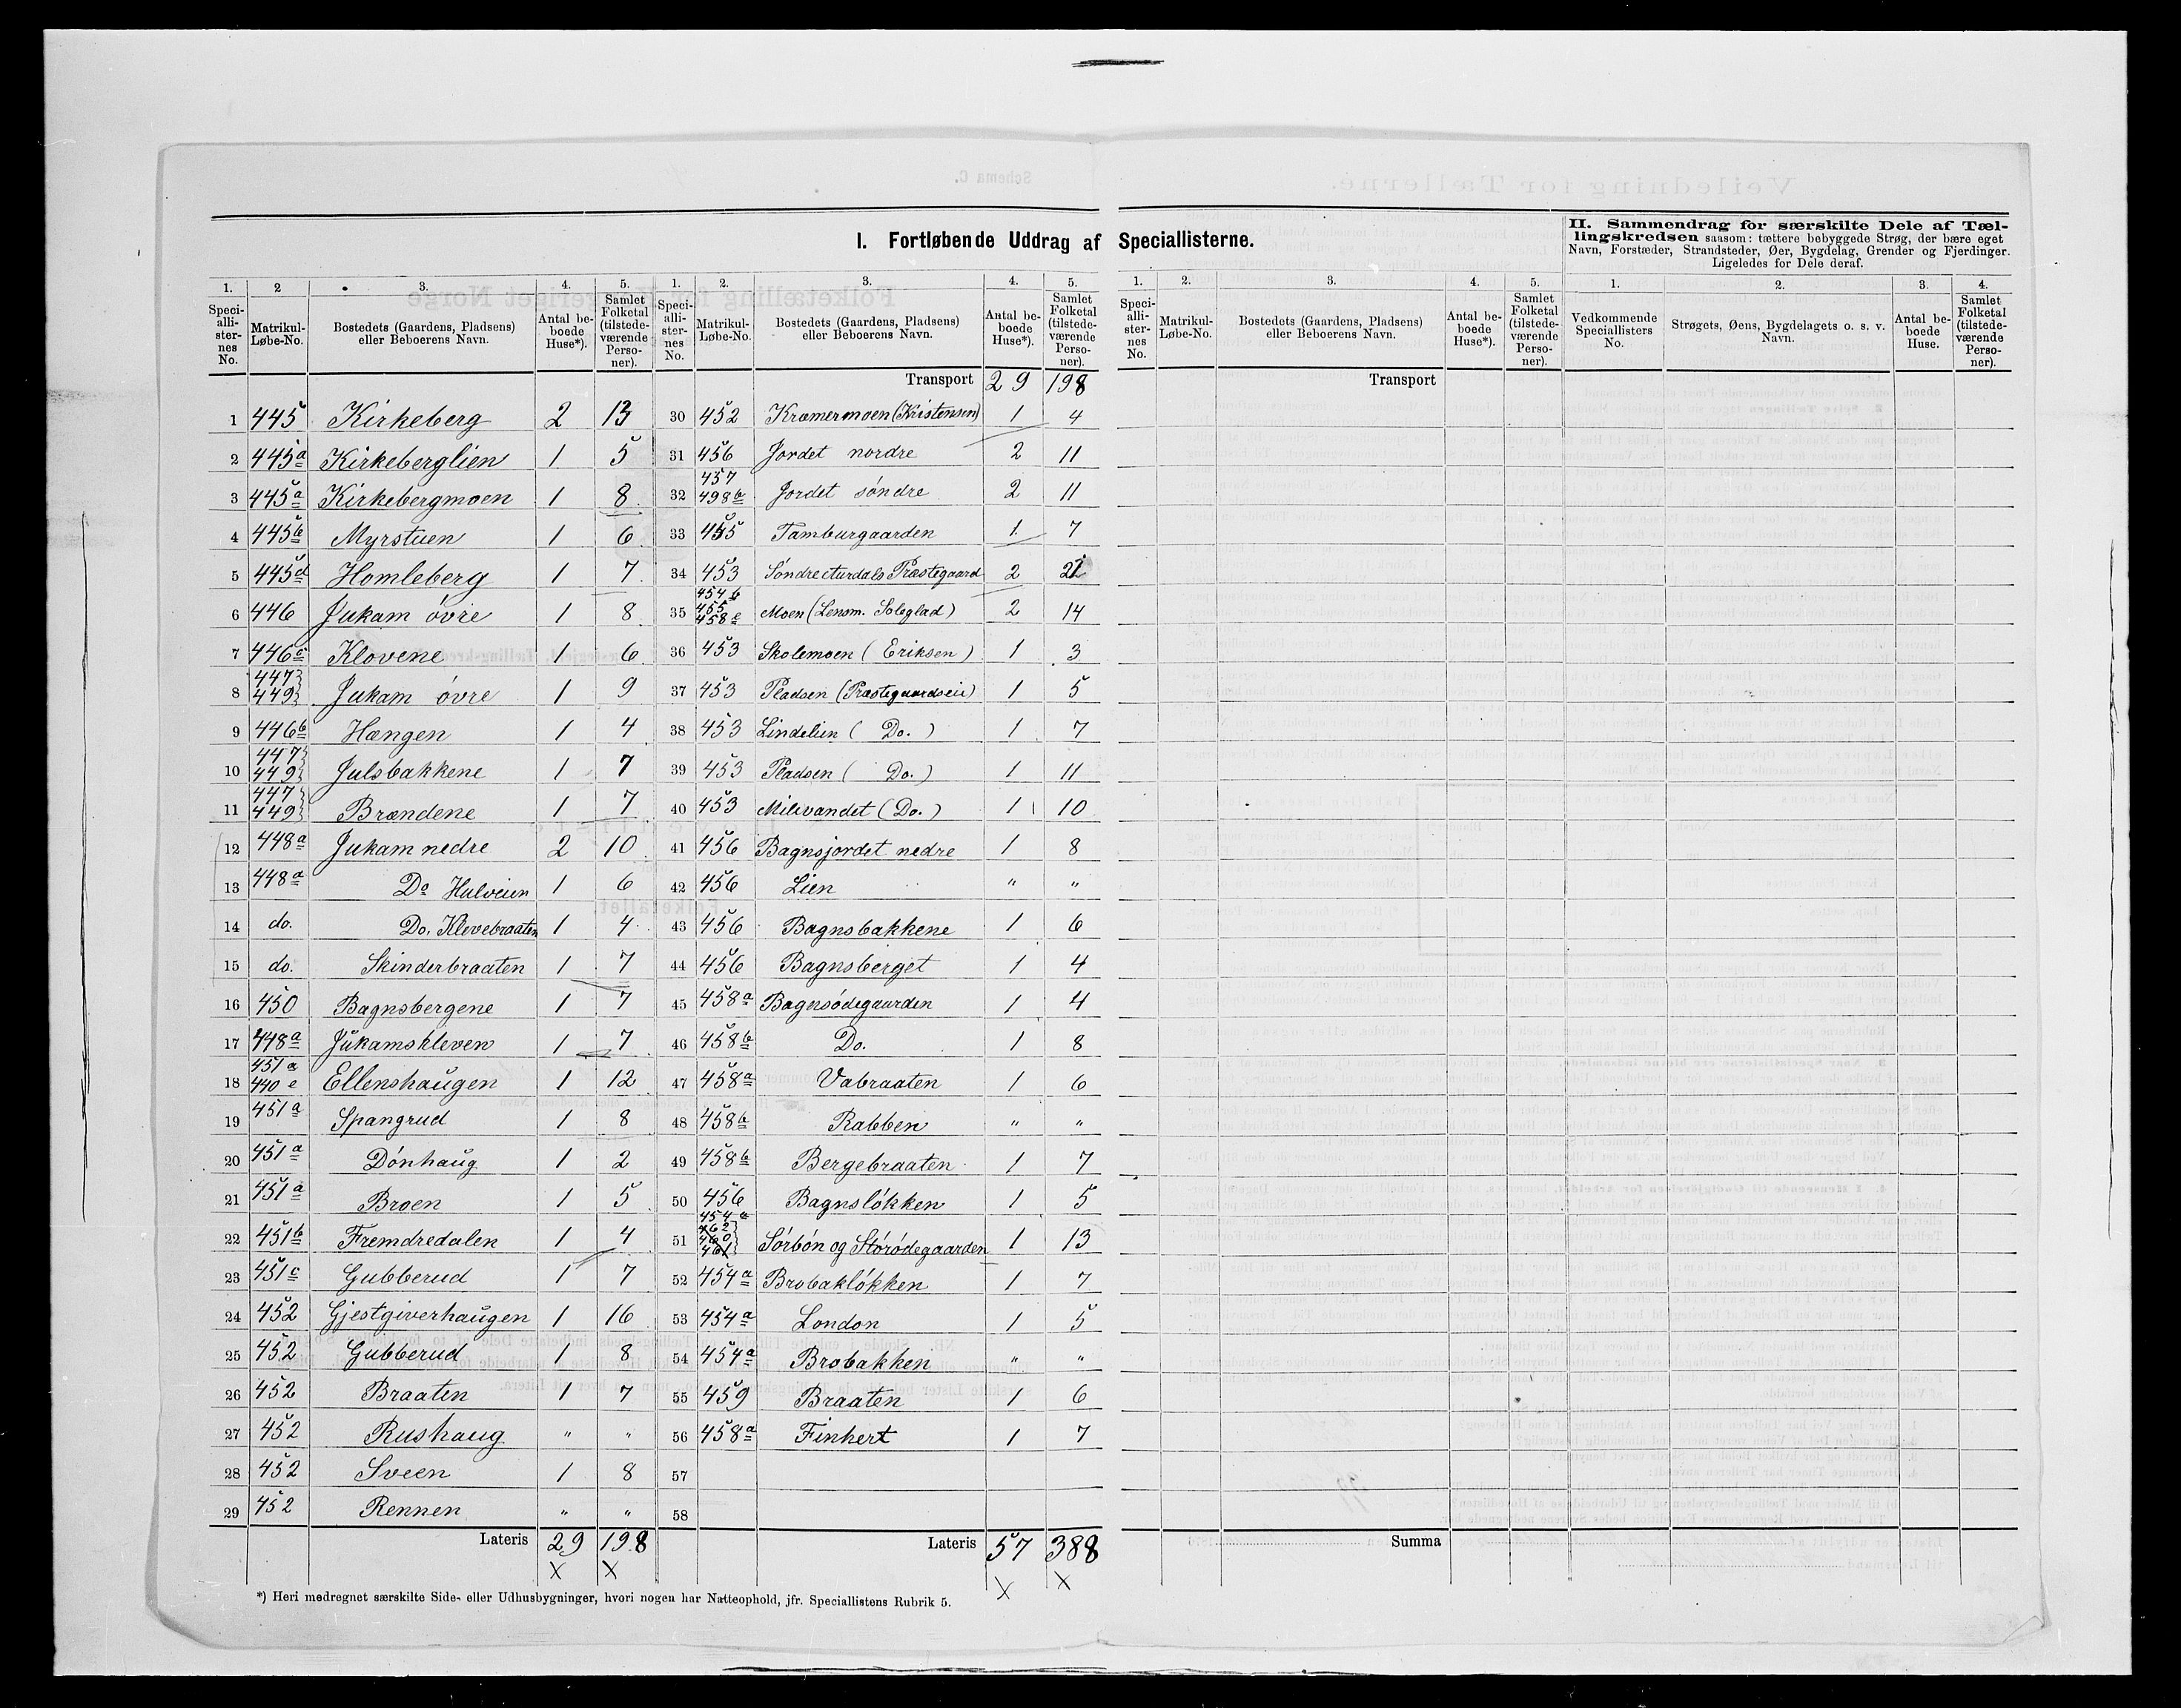 I. Fortløbende Uddrag af Speciallisterne.
II. Sammendrag for særskilte Dele af Tællingskredsen saasom: tættere bebyggede Strøg, der bære eget
Navn, Forstæder, Strandsteder, Øer, Bygdelag, Grender og Fjerdinger.
Ligeledes for Dele deraf.
1. 2 3. 4. 5. 1. 2. 3. 4. 5. 1. 2. 3. 4. 5. 1. 2. 3. 4.
Speciallisternes No. Matrikul-Løbe-No. Bostedets (Gaardens, Pladsens) eller Beboerens Navn. Antal beboede Huse*). Samlet Folketal (tilstedeværende Personer).
Speciallisternes No. Matrikul-Løbe-No. Bostedets (Gaardens, Pladsens) eller Beboerens Navn. Antal beboede Huse*). Samlet Folketal (tilstedeværende Personer).
Speciallisternes No. Matrikul-Løbe-No. Bostedets (Gaardens, Pladsens) eller Beboerens Navn. Antal beboede Huse*). Samlet Folketal (tilstedeværende Personer).
Vedkommende Speciallisters No. Strøgets, Øens, Bygdelagets o. s. v. Navn. Antal beboede Huse. Samlet Folketal (tilstedeværende Personer).
1 445 Kirkeberg 2 13
2 445a Kirkeberglien 1 5
3 445a Kirkebergmoen 1 8
4 445b Myrstuen 1 6
5 445d Homleberg 1 7
6 446 Jukam øvre 1 8
7 446c Klovene 1 6
8 447 449 Jukam øvre 1 9
9 446b Hængen 1 4
10 447 449 Julsbakkene 1 7
11 447 449 Brændene 1 7
12 448a Jukam nedre 2 10
13 448a Do Hulveien 1 6
14 do. Do. Klevebraaten 1 4
15 do. Skinderbraaten 1 7
16 450 Bagnsbergene 1 7
17 448a Jukamskleven 1 7
18 451a 440 e Ellenshaugen 1 12
19 451a Spangrud 1 8
20 451a Dønhaug 1 2
21 451a Broen 1 5
22 451b Fremdredalen 1 4
23 451c Gubberud 1 7
24 452 Gjestgiverhaugen 1 16
25 452 Gubberud 1 8
26 452 Braaten 1 7
27 452 Rushaug " "
28 452 Sveen 1 8
29 452 Rennen " "
Lateris 29 198
X X
Transport 29 198
30 452 Kramermoen (Kristensen) 1 4
31 456 Jordet nordre 2 11
32 457 498b Jordet søndre 2 11
33 455 Tamburgaarden 1 7
34 453 Søndre Aurdals Præstegaard 2
35 454b 455 458c Moen (Lensm. Soleglad) 2 14
36 453 Skolemoen (Eriksen) 1 3
37 453 Pladsen (Præstegaardseie) 1 5
38 453 Lindelien (Do.) 1 7
39 453 Pladsen (Do.) 1 11
40 453 Milevandet (Do.) 1 10
41 456 Bagnsjordet nedre 1 8
42 456 Lien " "
43 456 Bagnsbakkene 1 6
44 456 Bagnsberget 1 4
45 458a Bagnsødegaarden 1 4
46 458b Do. 1 8
47 458a Vabraaten 1 6
48 458a Rabben " "
49 458b Bergebraaten 1 7
50 456 Bagnsløkken 1 5
51 454a 462 460 461 Sørbøn og Storødegaarden 1 13
52 454a Brobakløkken 1 7
53 454a London 1 5
54 454a Brobakken " "
55 459 Braaten 1 6
56 458a Finhert 1 7
57
58
Lateris 57 388
X X
Transport
Summa
*) Heri medregnet særskilte Side- eller Udhusbygninger, hvori nogen har Natteophold, jfr. Speciallistens Rubrik 5.